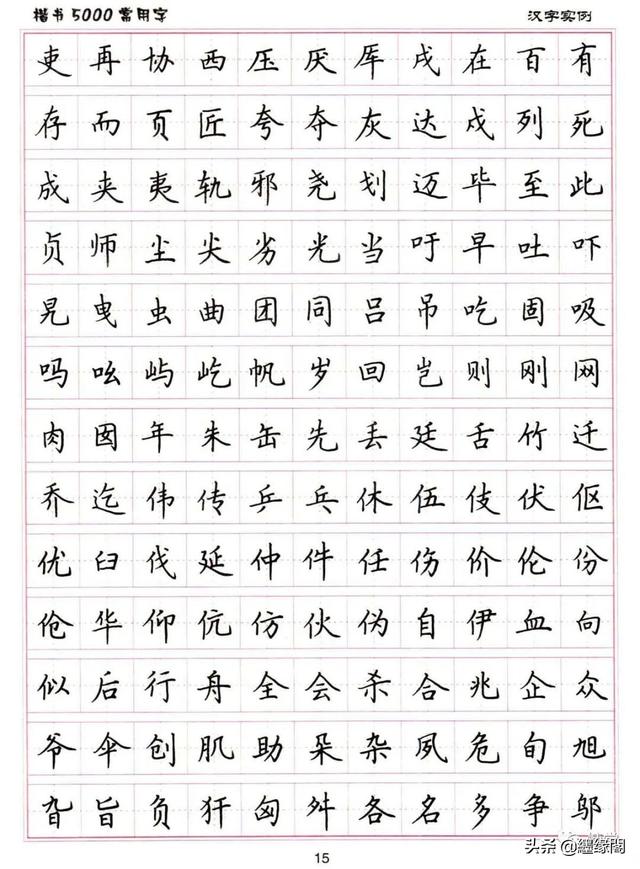 楷书5000常用字 汉字实例
吏再协西压厌厍戌在百有
存而页匠夸夺灰达戍列死
成夹夷轨邪尧划迈毕至此
贞师尘尖劣光当吁早吐吓
晃曳虫曲团同吕吊吃固吸
吗吆屿屹帆岁回岂则刚网
肉囡年朱缶先丢廷舌竹迁
乔迄伟传乒乓休伍伎伏伛
优臼伐延仲件任伤价伦份
伧华仰伉仿伙伪自伊血向
似后行舟全会杀合兆企众
爷伞创肌助朵杂夙危旬旭
旮旨负犴匈舛各名多争邬
15
头条 @纏缘閣